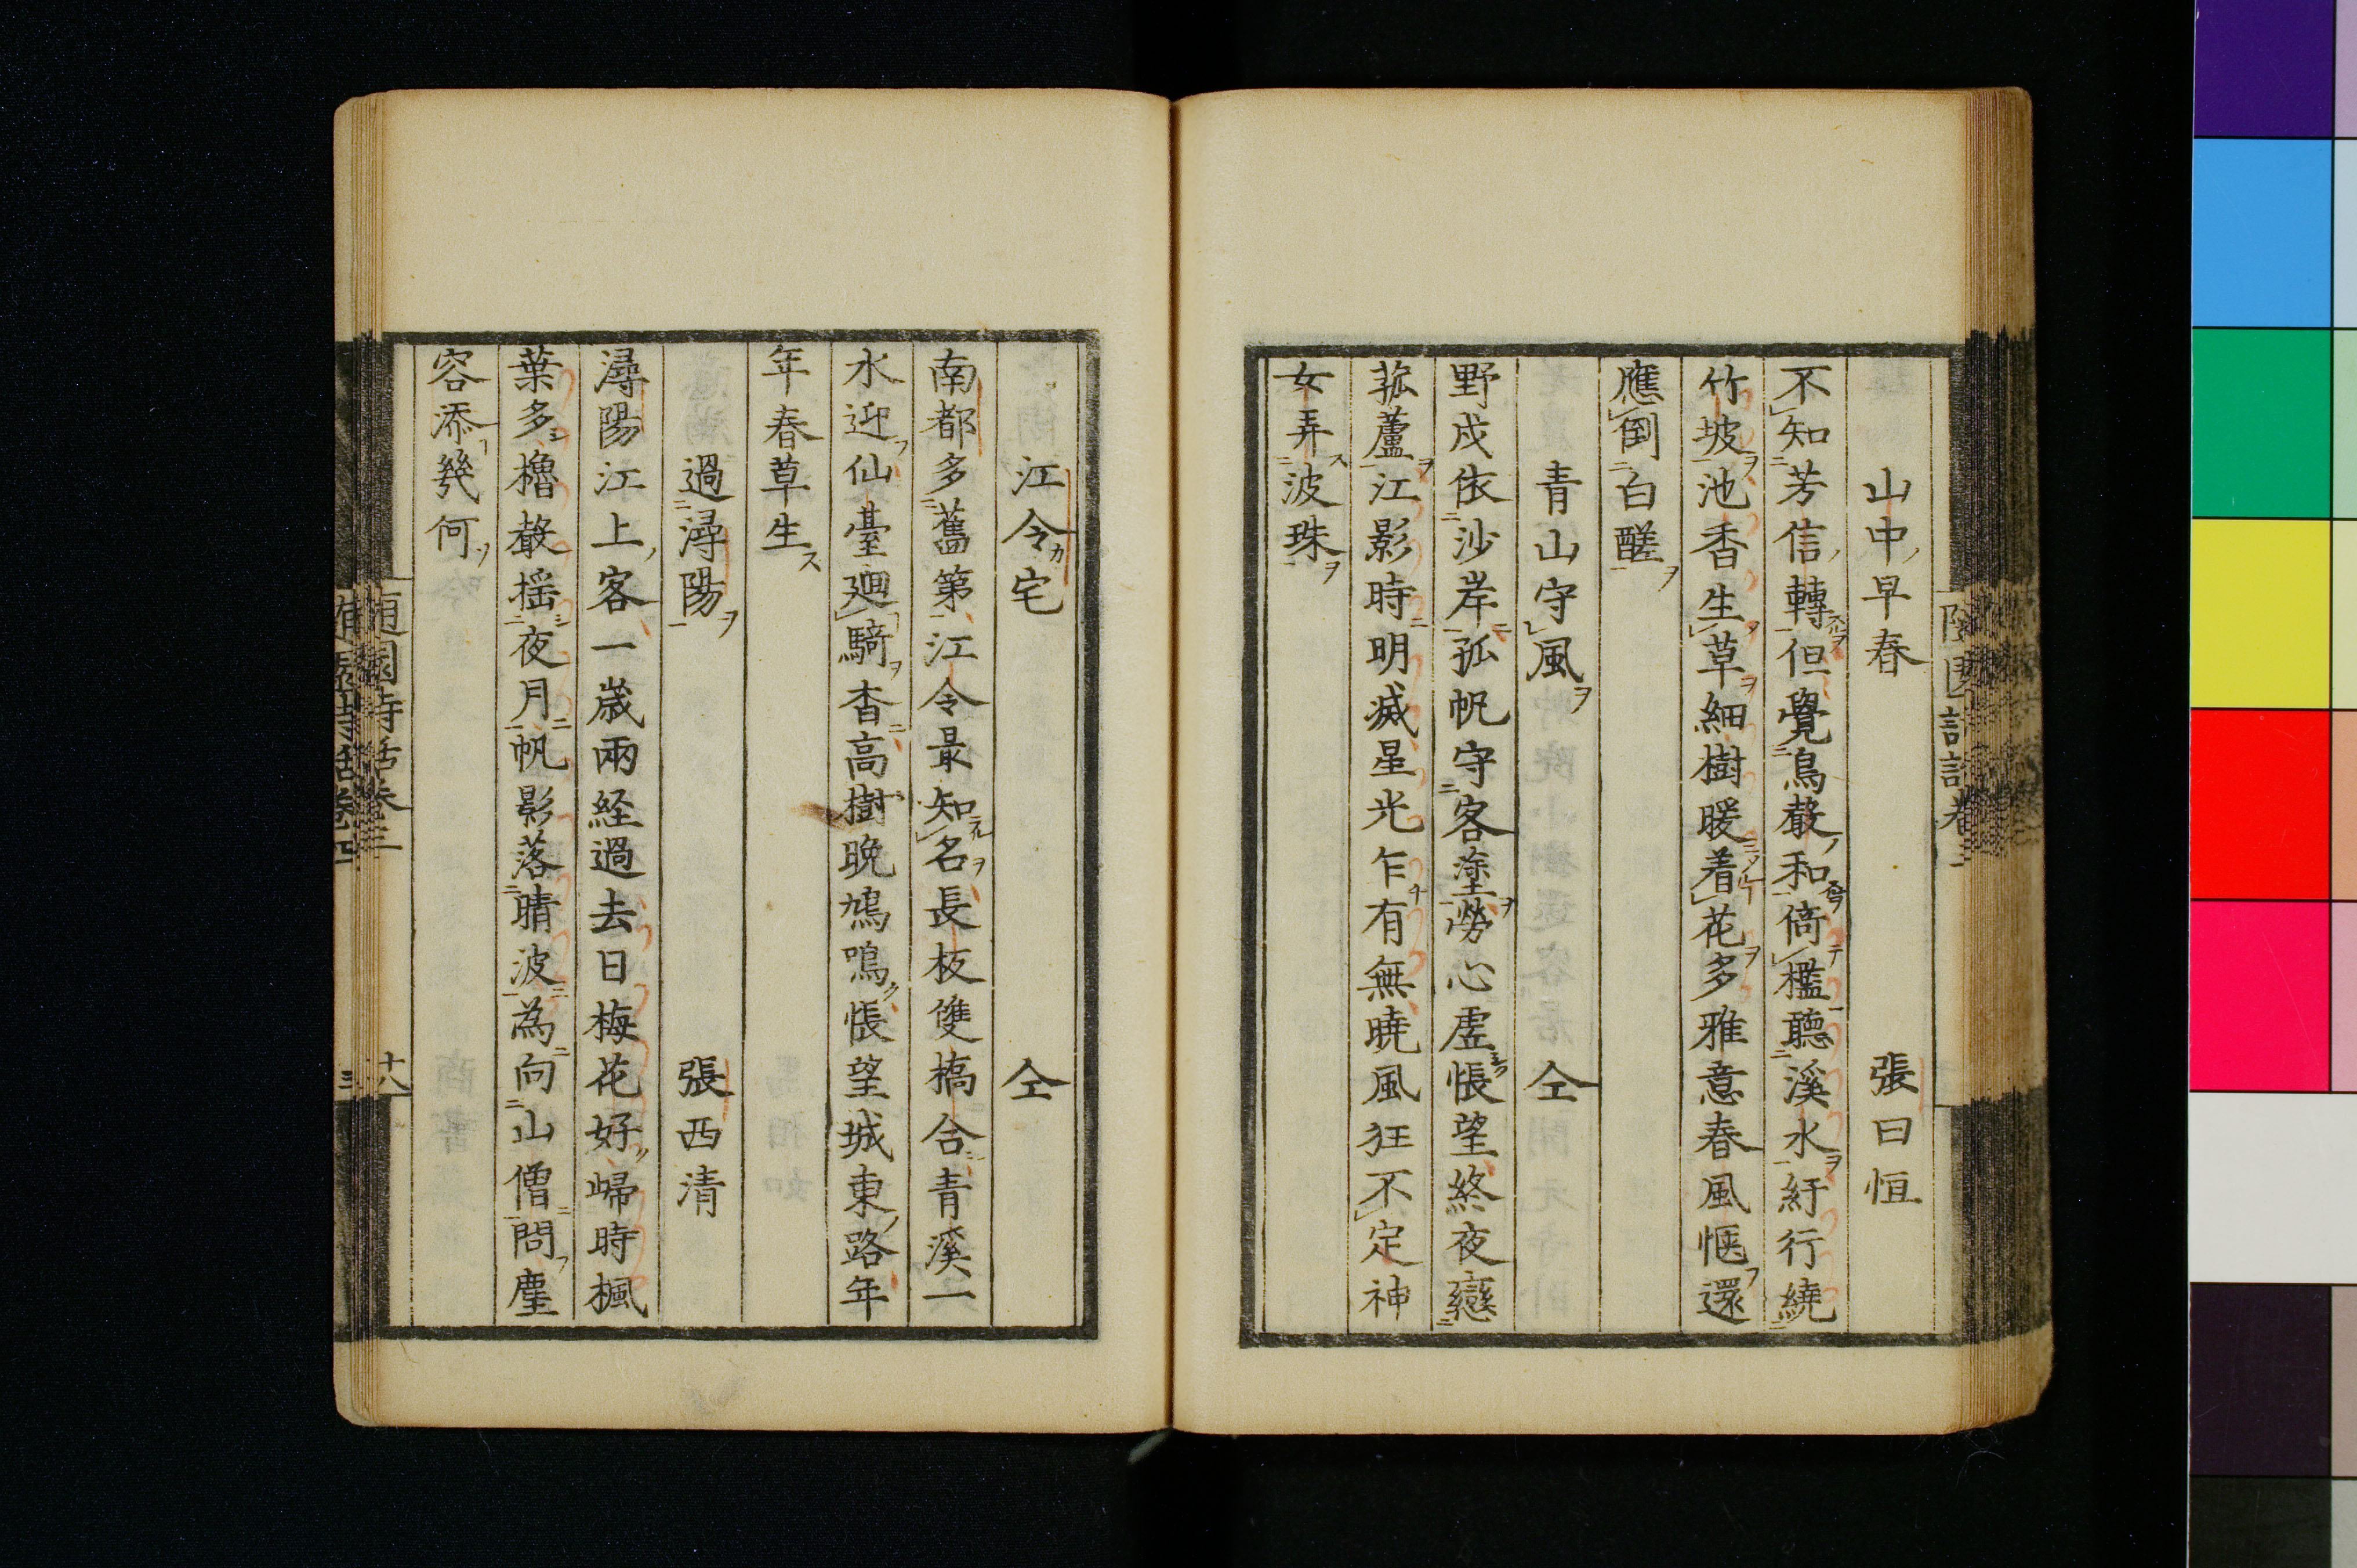 山中早春　張曰恒
不知芳信轉但覺鳥聲和倚檻聽溪水紆行繞
竹坡池香生草細樹暖着花多雅意春風愜還
應倒白醝
青山守風　仝
野戍依沙岸孤帆守客塗勞心虚悵望終夜戀
菰蘆江影時明滅星光乍有無曉風狂不定神
女弄波珠
江令宅　仝
南都多舊第江令最知名長板雙橋合青溪一
水迎仙臺廻騎杳高樹晚鳩鳴悵望城東路年
年春草生
過潯陽　張西清
潯陽江上客一歲兩経過去日梅花好歸時楓
葉多櫓聲摇夜月帆影落晴波為向山僧問塵
容添幾何
隨園詩話卷三
十八